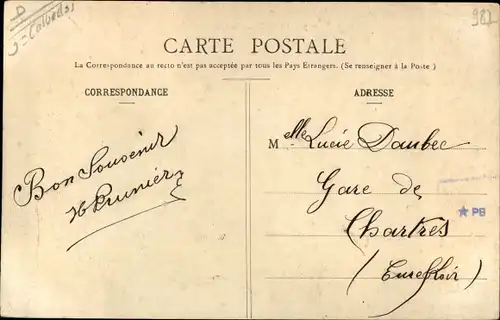 D
J = Calvados
987
CARTE POSTALE
La Correspondance au recto n'est pas acceptée par tous les Pays Etrangers. (Se renseigner à la Poste)
CORRESPONDANCE
Bon Souvenir
H Prunier
ADRESSE
Melle Lucie Daubec
Gare de
Chartres
(Eure & Loir)
★ PB